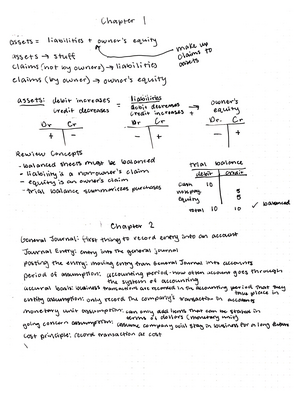 Chapter 1
assets = liabilities + owner's equity
make up claims to assets
assets → stuff
claims (not by owners) → liabilities
claims (by owner) → owner's equity
assets: debit increases
credit decreases
=
liabilities
debit decreases
credit increases
+
owner's equity
Dr Cr
+ -
Dr Cr
- +
Dr. Cr
- +
Review Concepts
- balanced sheets must be balanced
- liability is a non-owner's claim
- equity is an owner's claim
- trial balance summarizes purchases
trial balance
debit credit
cash 10
5
equity 5
total 10 10 ✓ balanced
Chapter 2
General Journal: first thing to record entry into an account
Journal Entry: entry into the general journal
Posting the entry: moving entry from General Journal into accounts
period of assumption: accounting period - how often account goes through
the system of accounting
accural basis: business transactions are recorded in the accounting period that they
take place in
entity assumption: only record the company's transaction in accounts
monetary unit assumption: can only add items that can be stated in
terms of dollars (monetary unit)
going concern assumption: assume company will stay in business for a long time
cost principle: record transaction at cost